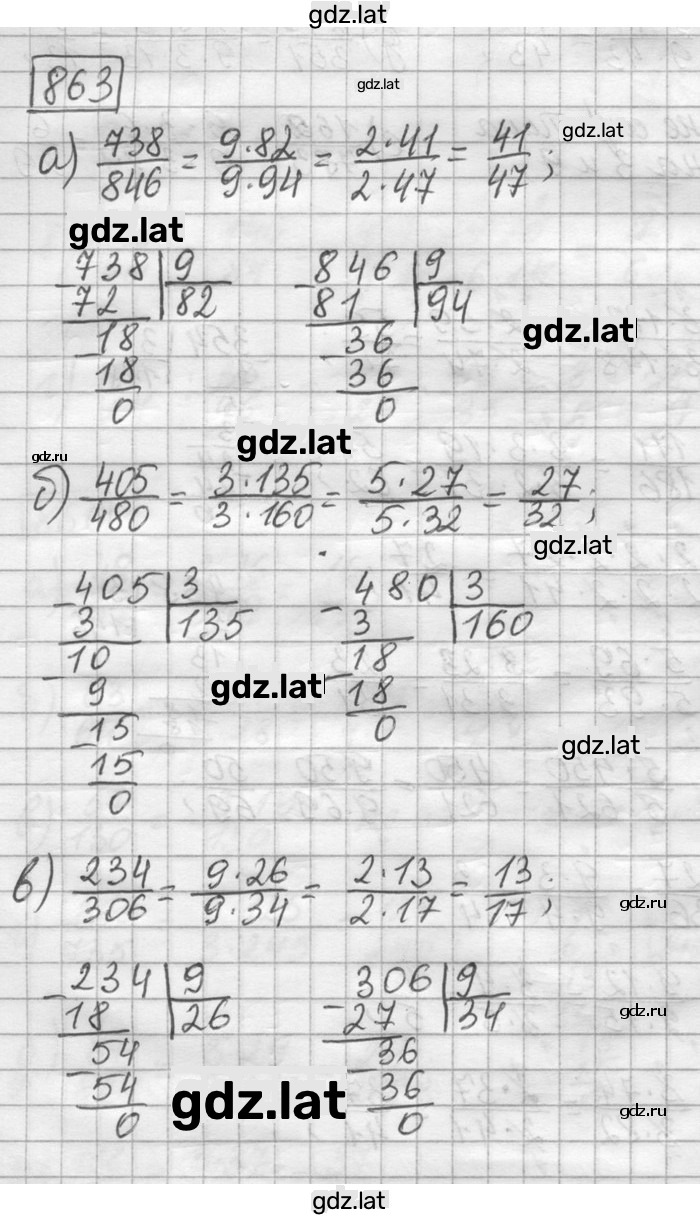 gdz.lat
863
gdz.lat
а) 738/846 = 9·82/9·94 = 2·41/2·47 = 41/47;
gdz.lat
gdz.lat
738 | 9
72 | 82
18
18
0
846 | 9
81 | 94
36
36
0
gdz.lat
gdz.lat
gdz.ru
б) 405/480 = 3·135/3·160 = 5·27/5·32 = 27/32;
gdz.lat
405 | 3
3 | 135
10
9
15
15
0
480 | 3
3 | 160
18
18
0
gdz.lat
gdz.lat
в) 234/306 = 9·26/9·34 = 2·13/2·17 = 13/17;
gdz.ru
234 | 9
18 | 26
54
54
0
306 | 9
27 | 34
36
36
0
gdz.ru
gdz.lat
gdz.ru
gdz.lat